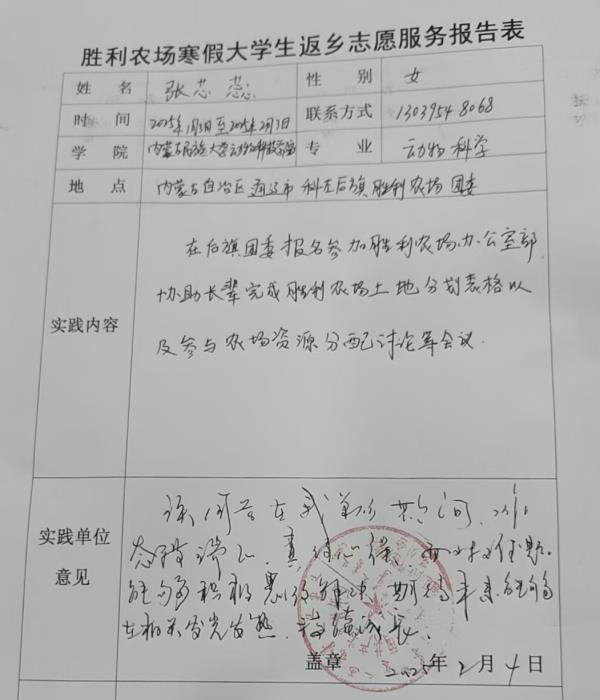 胜利农场寒假大学生返乡志愿服务报告表
姓 名 张芯蕊 性 别 女
时 间 2025年1月3日至2025年2月3日 联系方式 13039548068
学 院 内蒙古民族大学动物科技学院 专 业 动物科学
地 点 内蒙古自治区通辽市科左后旗胜利农场团委
在后旗团委报名参加胜利农场办公室部
协助长辈完成胜利农场土地分划表格以
实践内容
及参与农场资源分配讨论等会议.
该同学在我单位期间,工作
实践单位
态度端正,真 ,面对难题,
意见
能够积极 解决,期待未来能够
在相关 发光发热,持续成长.
盖章 2025年2月4日